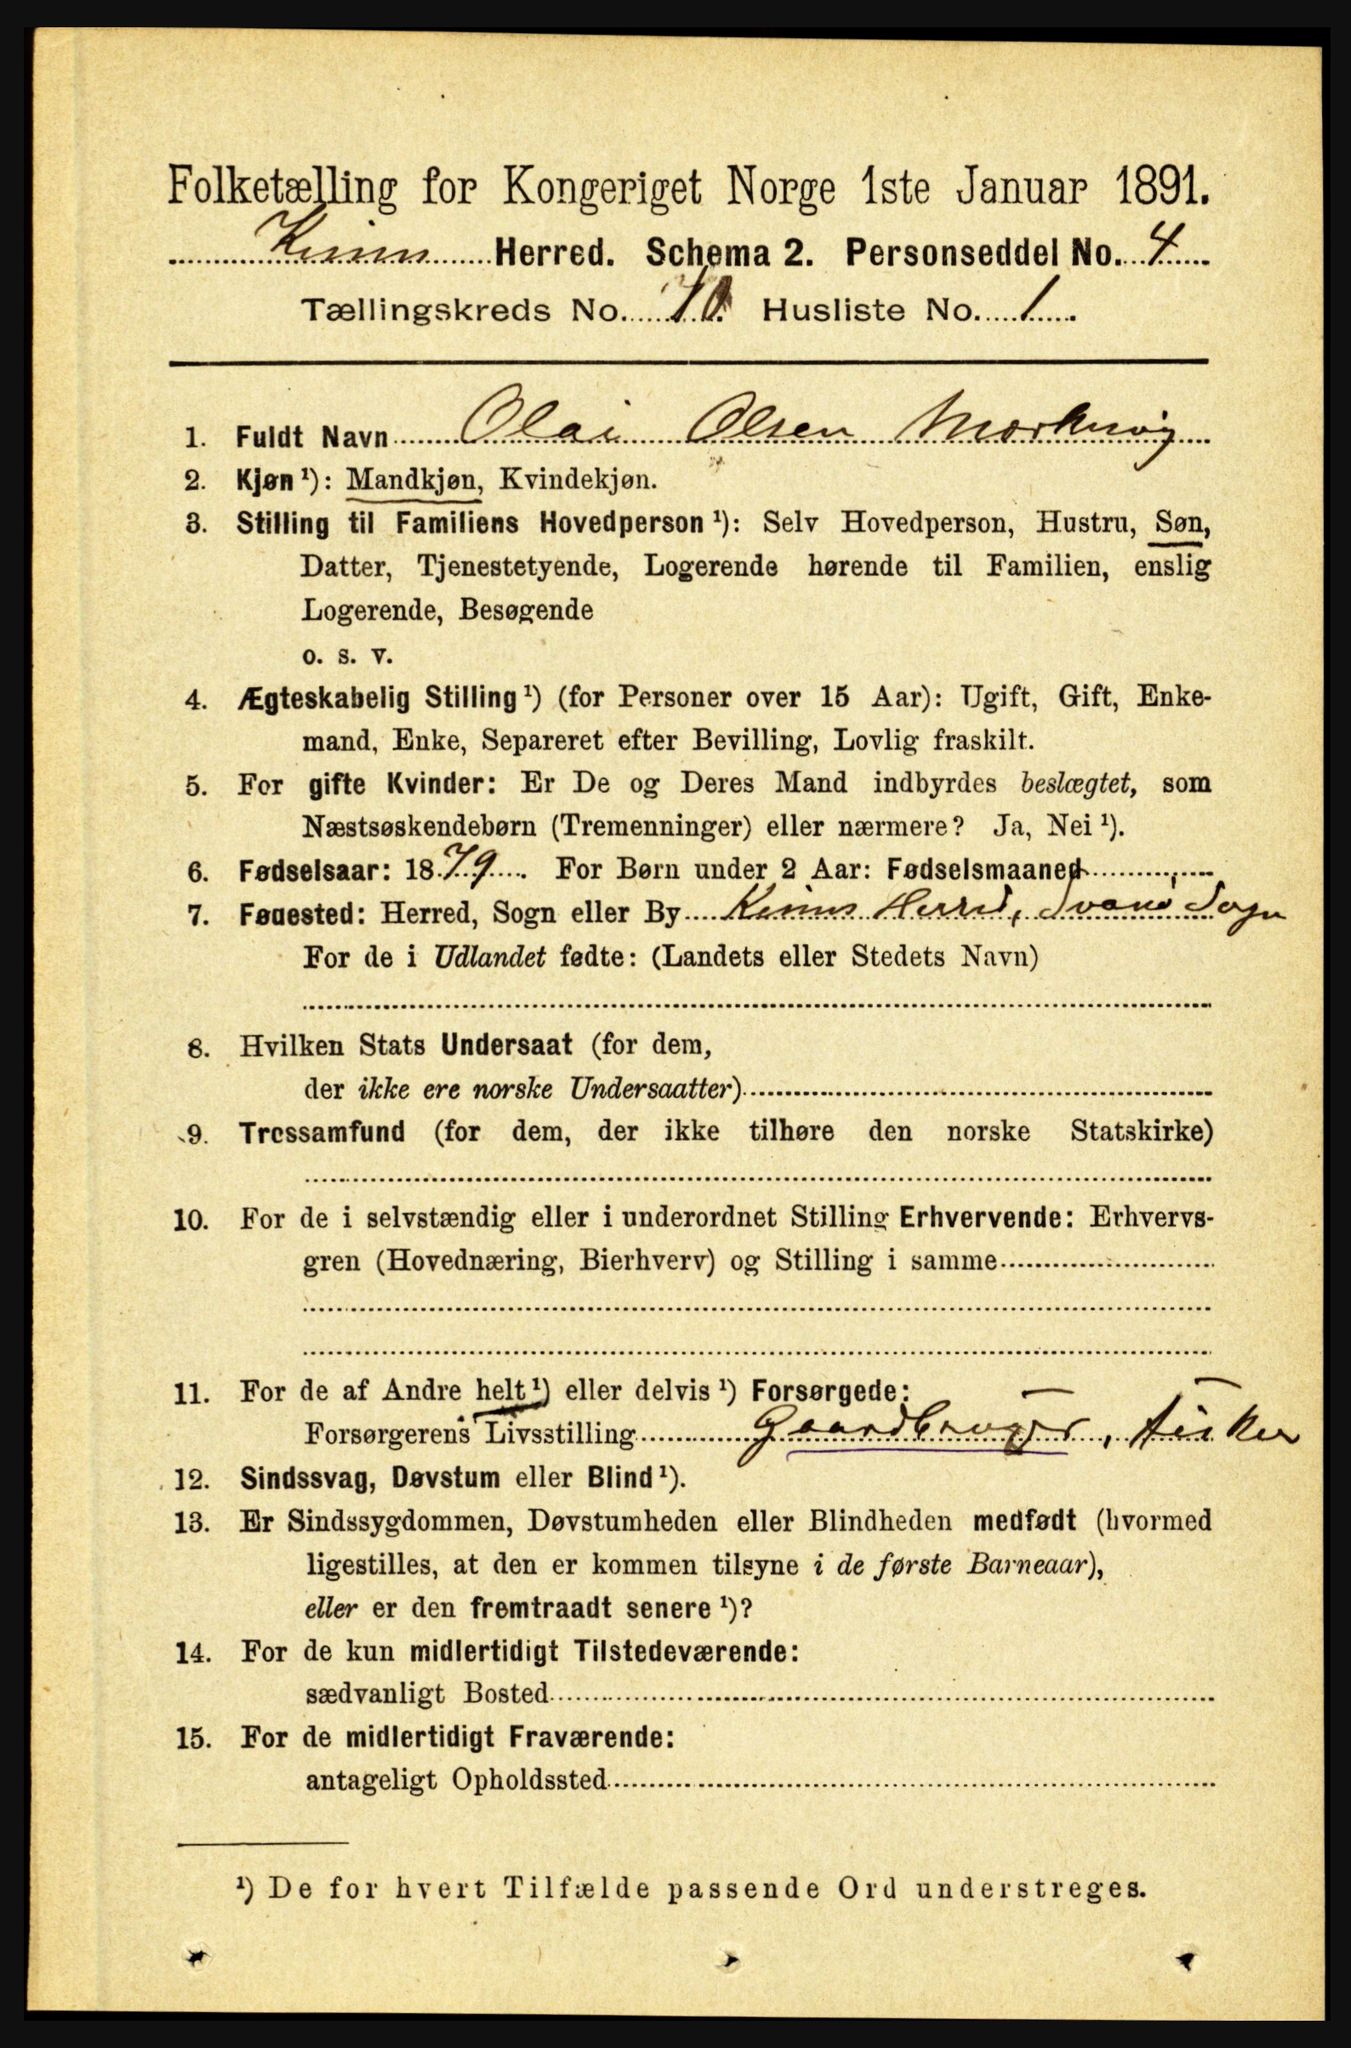 Folketælling for Kongeriget Norge 1ste Januar 1891.
Kinn Herred. Schema 2. Personseddel No. 4
Tællingskreds No. 10. Husliste No. 1
1. Fuldt Navn Olai Olsen Morkisvig
2. Kjøn ¹): Mandkjøn, Kvindekjøn.
3. Stilling til Familiens Hovedperson ¹): Selv Hovedperson, Hustru, Søn,
Datter, Tjenestetyende, Logerende hørende til Familien, enslig
Logerende, Besøgende
o. s. v.
4. Ægteskabelig Stilling ¹) (for Personer over 15 Aar): Ugift, Gift, Enke-
mand, Enke, Separeret efter Bevilling, Lovlig fraskilt.
5. For gifte Kvinder: Er De og Deres Mand indbyrdes beslægtet, som
Næstsøskendebørn (Tremenninger) eller nærmere? Ja, Nei ¹).
6. Fødselsaar: 1879. For Børn under 2 Aar: Fødselsmaaned
7. Fødested: Herred, Sogn eller By Kinns Herred, Svanø Sogn
For de i Udlandet fødte: (Landets eller Stedets Navn)
8. Hvilken Stats Undersaat (for dem,
der ikke ere norske Undersaatter)
9. Trossamfund (for dem, der ikke tilhøre den norske Statskirke)
10. For de i selvstændig eller i underordnet Stilling Erhvervende: Erhvervs-
gren (Hovednæring, Bierhverv) og Stilling i samme
11. For de af Andre helt ¹) eller delvis ¹) Forsørgede:
Forsørgerens Livsstilling Gaardbruger, Fisker
12. Sindssvag, Døvstum eller Blind ¹).
13. Er Sindssygdommen, Døvstumheden eller Blindheden medfødt (hvormed
ligestilles, at den er kommen tilsyne i de første Barneaar),
eller er den fremtraadt senere ¹)?
14. For de kun midlertidigt Tilstedeværende:
sædvanligt Bosted
15. For de midlertidigt Fraværende:
antageligt Opholdssted
¹) De for hvert Tilfælde passende Ord understreges.